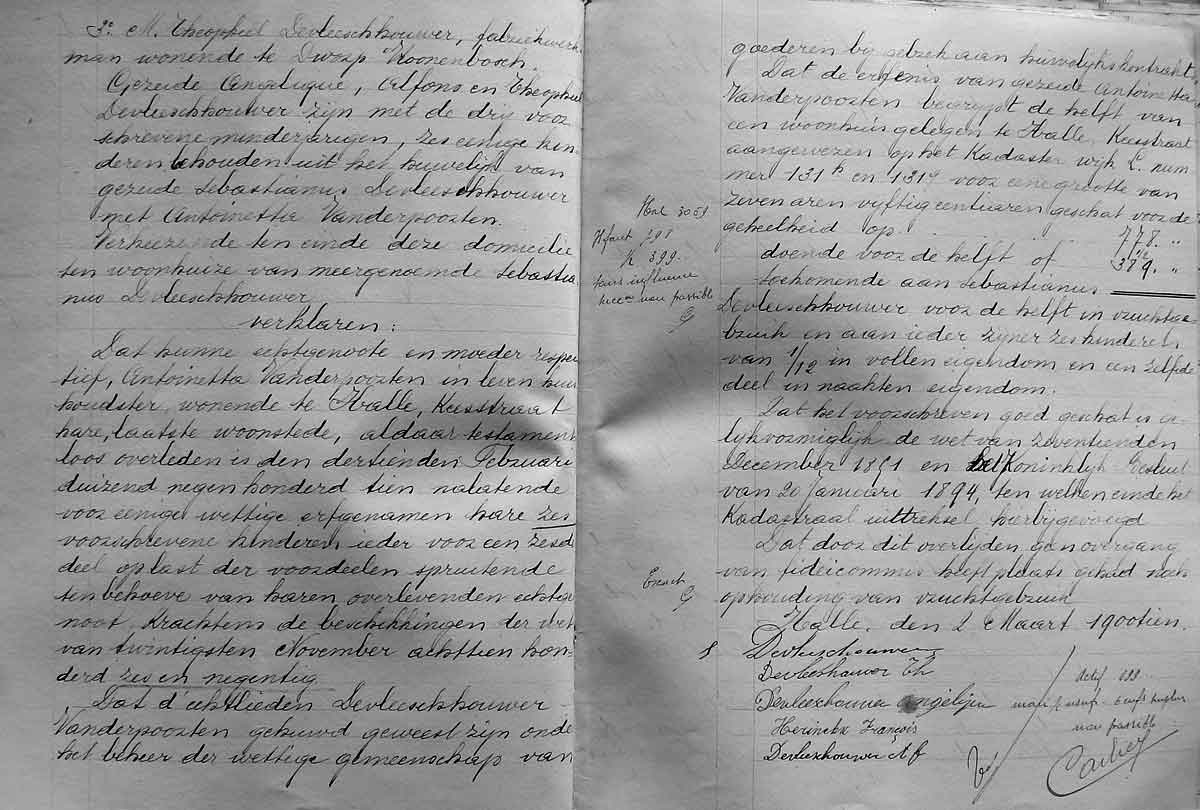 3e M. Theophiel Devleeschhouwer, fabriekwerk
man wonende te Dworp Kroonenbosch.
Gezeide Angelique, Alfons en Theophiel
Devleeschhouwer zijn met de drij voor
schrevene minderjarigen, zes eenige kin
deren behouden uit het huwelijk van
gezeide Sebastianus Devleeschhouwer
met Antoinetta Vanderpoosten.
Verkiezende ten einde deze domicilie
ten woonhuize van meergenoemde Sebastia
nus Devleeschhouwer
verklaren:
Dat hunne echtgenoote en moeder respec
tief, Antoinetta Vanderpoosten in leven huis
houdster, wonende te Halle, Keesstraat
hare, laatste woonstede, aldaar testament
loos overleden is den dertienden Februari
duizend negen honderd tien nalatende
voor eenige wettige erfgenamen hare zes
voorschrevene kinderen, ieder voor een zesde
deel op last der voordeelen spruitende
ten behoeve van haren overlevenden echtge
noot, Krachtens de beschikkingen der wet
van twintigsten November achttien hon
derd zes en negentig
Dat d'echtlieden Devleeschhouwer -
Vanderpoosten gehuwd geweest zijn onder
het beheer der wettige gemeenschap van
goederen bij gebrek aan huwelijks kontrakt
Dat de erfenis van gezeide Antoinetta
Vanderpoosten begrijpt de helft van
een woonhuis gelegen te Halle, Keesstraat
aangewezen op het Kadaster wijk C. num
mer 131h en 131g voor eene grootte van
zeven aren vijftig centiaren geschat voor de
geheelheid op . . . . . 778. "
doende voor de helft of 389. "
toekomende aan Sebastianus
Devleeschhouwer voor de helft in vruchtge
bruik en aan ieder zijner zes kinderen
van 1/12 in vollen eigendom en een zelfde
deel in naakten eigendom.
Dat het voorschreven goed geschat is ge
lijkvormiglijk de wet van zeventienden
December 1851 en het Koninklijk Besluit
van 20 Januari 1894, ten welken einde het
Kadastraal uittreksel hierbijgevoegd
Dat door dit overlijden geen overgang
van fideicommis heeft plaats gehad noch
ophouding van vruchtgebruik
Halle, den 2 Maart 1900tien.
399.
sans influence
non passible
Exact
Devleeschouwer
Devleeshauwer Th
Devleexhouwer Angelijn
Herinckx François
Devleexhouwer Af
non passible